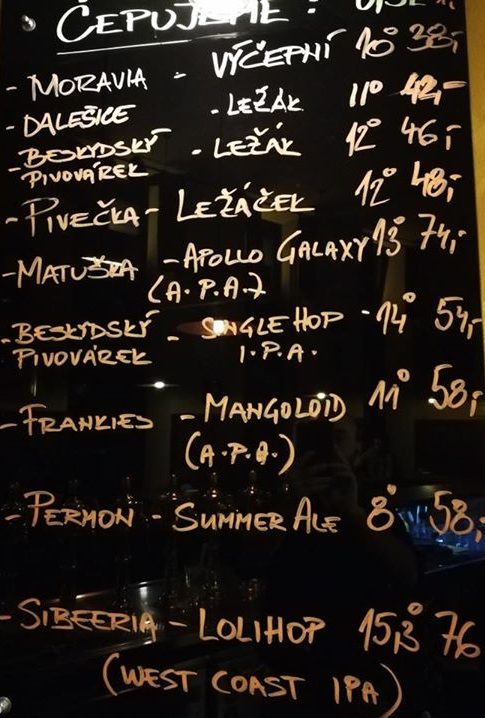 ČEPUJEME:
- MORAVIA - VÝČEPNÍ 10° 38,-
- DALEŠICE - LEŽÁK 11° 42,-
- BESKYDSKÝ PIVOVÁREK - LEŽÁK 12° 46,-
- PIVEČKA - LEŽÁČEK 12° 48,-
- MATUŠKA - APOLLO GALAXY 13° 74,-
(A.P.A.)
- BESKYDSKÝ - SINGLE HOP - 14° 54,-
PIVOVÁREK I.P.A.
- FRANKIES - MANGOLOID 11° 58,-
(A.P.A.)
- PERMON - SUMMER ALE 8° 58,-
- SIBEERIA - LOLIHOP 15,3° 76
(WEST COAST IPA)